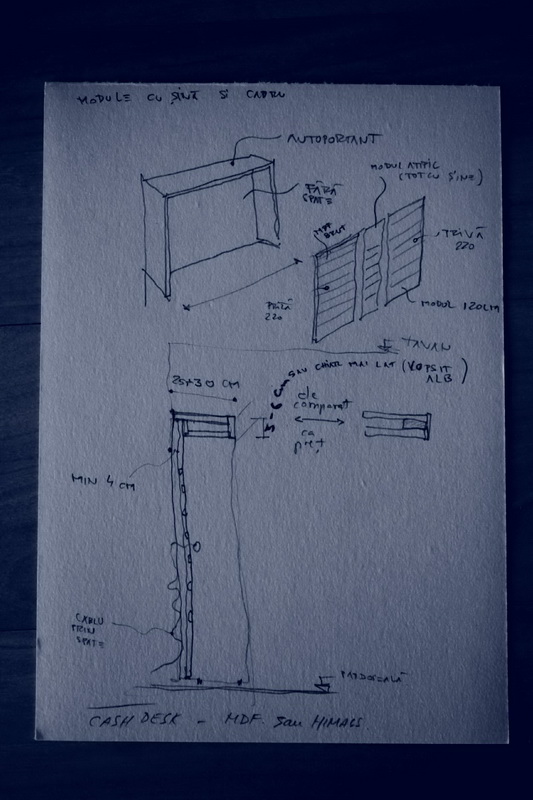 MODULE CU ȘINĂ SI CADRU
AUTOPORTANT
MODUL ATIPIC
(TOT CU ȘINE)
FĂRĂ
SPATE
MDF
BRUT
PRIZĂ
220
PRIZĂ
220
MODUL 120CM
TAVAN
25+30 CM
5-6 cm SAU CHIAR MAI LAT (VOPSIT
ALB)
de
comparat
ca
preț
MIN 4 CM
CABLU
PRIN
SPATE
PARDOSEALĂ
CASH DESK - MDF sau HIMACS